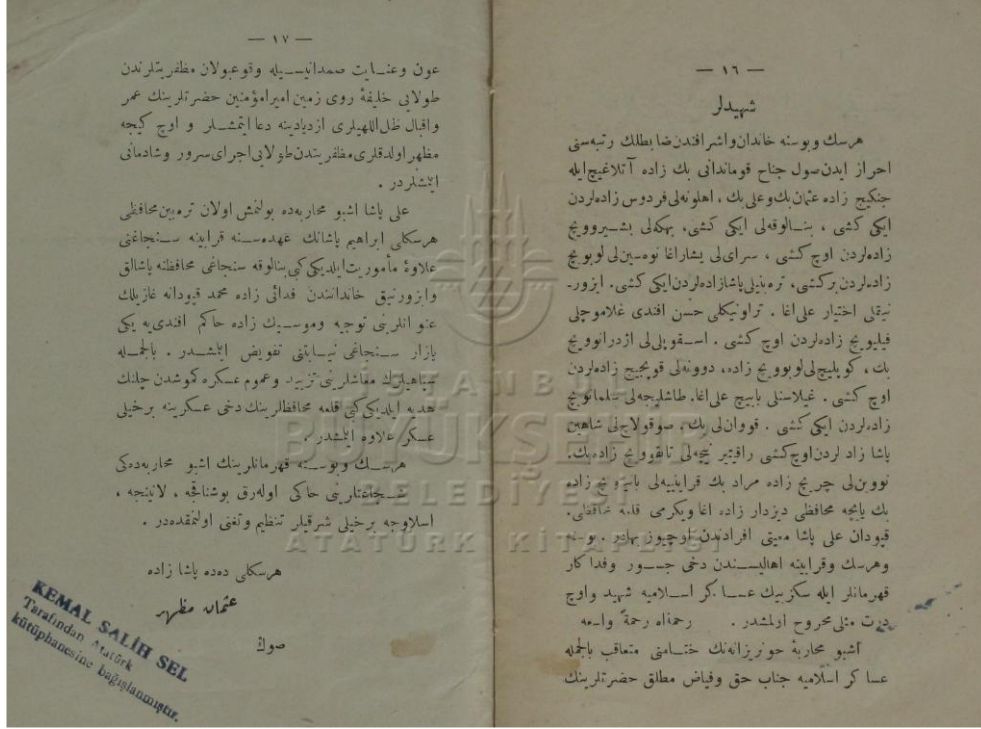 — ١٦ —
شهيدلر
هرسك وبوسنه خاندان واشرافندن ضابطلك رتبه‌سنى
احراز ايدن صول جناح قوماندانى بك زاده آتلاغيج ايله
جنكيج زاده عثمان بك وعلى بك ، اهلونه‌لى فردوس زاده‌لردن
ايكى كشى ، بنالوقه‌لى ايكى كشى، بهكه‌لى بشيروويج
زاده‌لردن اوچ كشى ، سراى‌لى يشار اغا نوه‌سين‌لى لوبويج
زاده‌لردن بر كشى، تره‌بينلى پاشازاده‌لردن ايكى كشى. ايزور-
نيقلى اختيار على اغا . تراونيكلى حسن افندى غلاموچلى
فيليپويج زاده‌لردن اوچ كشى . اسقوپلى‌لى اژدرانوويج
بك ، كوپليج‌لى لوبوويج زاده، دوونه‌لى قوپچيج زاده‌لردن
اوچ كشى . غيلاسنلى بابيچ على اغا. طاشليجه‌لى سلمانويج
زاده‌لردن ايكى كشى . قووان‌لى بك . صوقولاج‌لى شاهين
پاشا زاد لردن اوچ كشى راقيتنر نيچه‌لى تانقوويج زاده بك.
نووين‌لى چريج زاده مراد بك قرابينه‌لى زاده
بك يايچه محافظى ديزدار زاده اغا ويكرمى قلعه محافظى.
قپودان على پاشا معيتى افرادندن اوچيوز بهادر . بوسنه
وهرسك وقرابينه اهاليسندن دخى جسور وفداكار
قهرمانلر ايله سكزبيك عساكر اسلاميه شهيد واوچ
درت مثلى مجروح اولمشدر . رحمةالله رحمةً واسعه
اشبو محاربهٔ خونريزانه‌نك ختامنى متعاقب بالجمله
عساكر اسلاميه جناب حق وفياض مطلق حضرتلرينك
— ١٧ —
عون وعنايت صمدانيسيله وقوعبولان مظفريتلرندن
طولايى خليفهٔ روى زمين اميرامؤمنين حضرتلرينك عمر
واقبال ظل‌اللهيلرى ازديادينه دعا ايتمشلر و اوچ كيجه
مظهر اولدقلرى مظفريتدن طولايى اجراى سرور وشادمانى
ايتمشلردر .
على پاشا اشبو محاربه‌ده بولنمش اولان تره‌بين محافظى
هرسكلى ابراهيم پاشانك عهده‌سنه قرابينه سنجاغنى
علاوةً مأموريت ايلديكى كبى بنالوقه سنجاغى محافظنه پاشالق
وايزورنيق خاندانندن فدائى زاده محمد قپودانه غازيلك
عنوانلرينى توجيه وموسيك زاده حاكم افندى‌يه يكى
بازار سنجاغى نيابتنى تفويض ايتمشدر . بالجمله
سپاهيلرك معاشلرينى تزييد وعموم عسكره كموشدن چلنك
هديه ايلديكى كبى قلعه محافظلرينك دخى عسكرينه برخيلى
عسكر علاوه ايتمشدر .
هرسك وبوسنه قهرمانلرينك اشبو محاربه‌ده‌كى
شجاعتلرينى حاكى اوله‌رق بوشناقجه ، لاتينجه ،
اسلاوجه برخيلى شرقيلر تنظيم وتغنى اولنمقده‌در .
هرسكلى دده پاشا زاده
عثمان مظهر
صوڭ
KEMAL SALİH SEL
Tarafından Atatürk
kütüphanesine bağışlanmıştır.
İSTANBUL
BÜYÜKŞEHİR
BELEDİYESİ
ATATÜRK KİTAPLIĞI